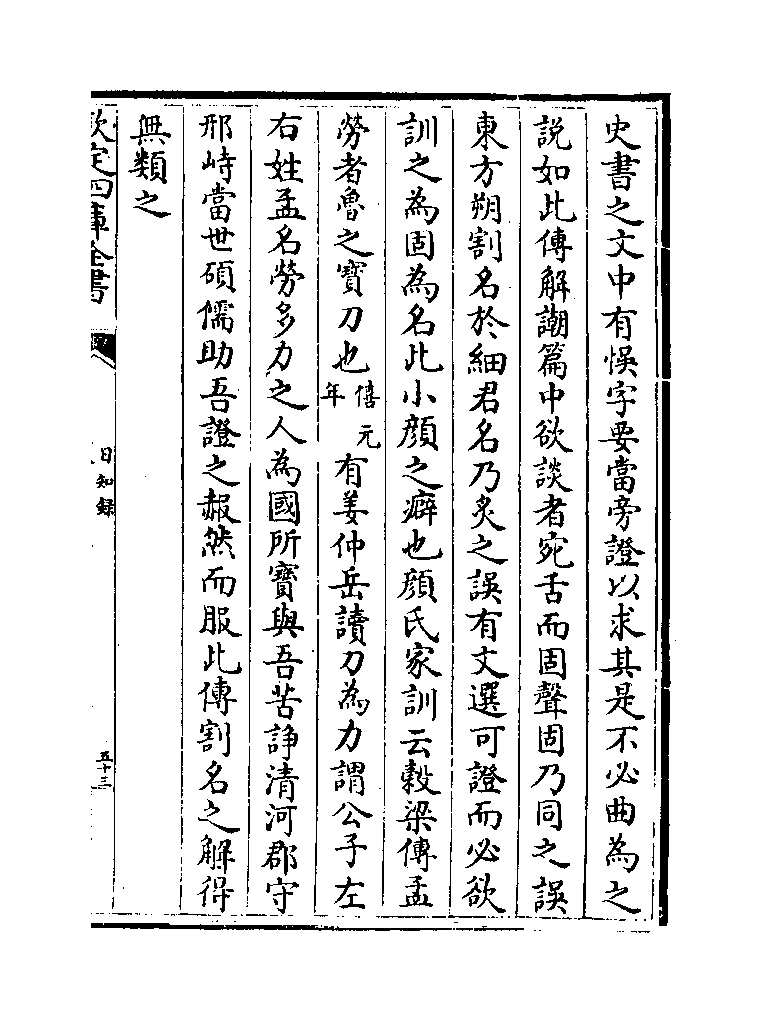 史書之文中有悞字要當旁證以求其是不必曲為之
說如此傳解謿篇中欲談者宛舌而固聲固乃同之誤
東方朔割名於細君名乃炙之誤有文選可證而必欲
訓之為固為名此小顔之癖也顔氏家訓云穀梁傳孟
勞者魯之寳刀也僖元年有姜仲岳讀刀為力謂公子左
右姓孟名勞多力之人為國所寳與吾苦諍清河郡守
邢峙當世碩儒助吾證之赧然而服此傳割名之解得
無類之
欽定四庫全書
日知録
五十三